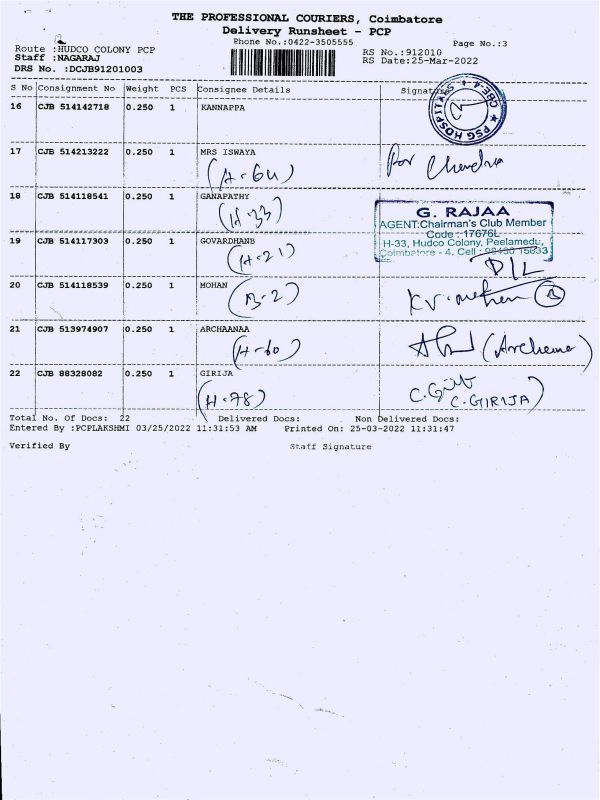 THE PROFESSIONAL COURIERS, Coimbatore
Delivery Runsheet - PCP
Phone No.:0422-3505555
Page No.:3
Route :HUDCO COLONY PCP
RS No.:912010
Staff :NAGARAJ
RS Date:25-Mar-2022
DRS No. :DCJB91201003
S No Consignment No Weight PCS Consignee Details Signature
16 CJB 514142718 0.250 1 KANNAPPA
PSG HOSPITALS CBE-4
17 CJB 514213222 0.250 1 MRS ISWAYA
(A-64) for Chandra
18 CJB 514118541 0.250 1 GANAPATHY
(H-33)
G. RAJAA
AGENT:Chairman's Club Member
Code : 17676L
19 CJB 514117303 0.250 1 GOVARDHANB
H-33, Hudco Colony, Peelamedu,
Coimbatore - 4. Cell : 15633
(H-21) D/L
20 CJB 514118539 0.250 1 MOHAN
(B-2) KV. B
21 CJB 513974907 0.250 1 ARCHAANAA
(H-60) (Archana)
22 CJB 88328082 0.250 1 GIRIJA
(H-78) C. C. GIRIJA)
Total No. Of Docs: 22 Delivered Docs: Non Delivered Docs:
Entered By :PCPLAKSHMI 03/25/2022 11:31:53 AM Printed On: 25-03-2022 11:31:47
Verified By Staff Signature